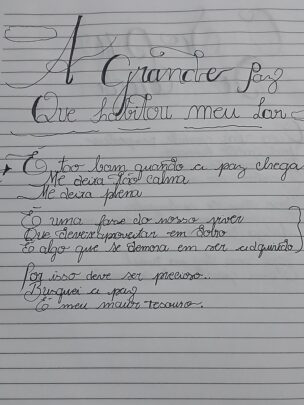 A Grande Paz
Que habitou meu lar
É tão bom quando a paz chega
Me deixa tão calma
Me deixa plena
É uma fase do nosso viver
Que devesse aproveitar em dobro
É algo que se demora em ser adquirido
Por isso deve ser precioso..
Busquei a paz
É meu maior tesouro.